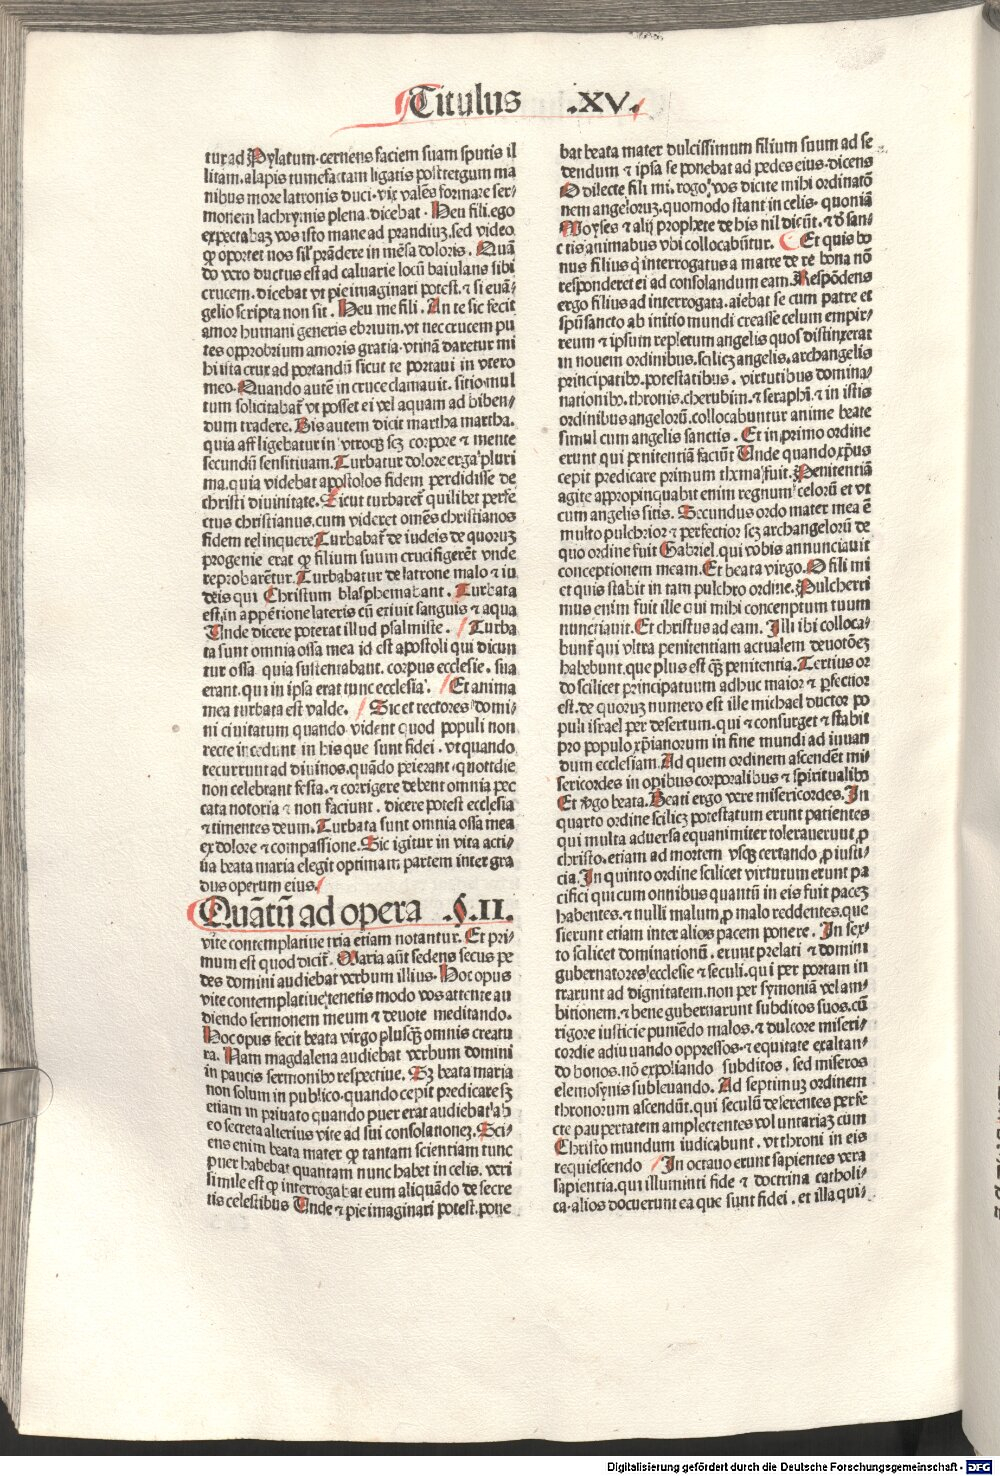 Titulus .XV.
tur ad Pylatum. cernens faciem suam sputis il
litam. alapis tumefactam ligatis post tergum ma
nibus more latronis duci. vix valēs formare ser⸗
monem lachrymis plena. dicebat. Heu fili. ego
expectabaʒ vos isto mane ad prandiuʒ. sed video
ꝙ oportet nos sil' prādere in mēsa doloris. Quā
do vero ductus est ad caluarie locū baiulans sibi
crucem. dicebat vt pie imaginari potest. ⁊ si euā⸗
gelio scripta non sit. Heu me fili. An te sic fecit
amor humani generis ebrium. vt nec crucem pu
tes opprobrium amoris gratia. vtinā daretur mi
hi ista crux ad portandū sicut te portaui in vtero
meo. Quando autē in cruce clamauit. sitio. mul
tum solicitabat̄ vt posset ei vel aquam ad biben⸗
dum tradere. Bis autem dicit martha martha.
quia affligebatur in vtroqʒ scʒ corpore ⁊ mente
secundū sensitiuam. Turbatur dolore erga pluri
ma. quia videbat apostolos fidem perdidisse de
christi diuinitate. Sicut turbaret̄ quilibet perfe
ctus christianus. cum videret omēs christianos
fidem relinquere Turbabat̄ de iudeis de quoruʒ
progenie erat ꝙ filium suum crucifigerēt vnde
reprobarētur. Turbabatur de latrone malo ⁊ iu
deis qui Christum blasphemabant. Turbata
est in appētione lateris cū exiuit sanguis ⁊ aqua
Unde dicere poterat illud psalmiste. Turba
ta sunt omnia ossa mea id est apostoli qui dicun
tur ossa quia sustentabant. corpus ecclesie. sua
erant. qui in ipsa erat tunc ecclesia. Et anima
mea turbata est valde. Sic et rectores domi⸗
ni ciuitatum quando vident quod populi non
recte incedunt in his que sunt fidei. vt quando
recurrunt ad diuinos. quādo peierant quottdie
non celebrant festa. ⁊ corrigere debent omnia pec
cata notoria ⁊ non faciunt. dicere potest ecclesia
⁊ timentes deum. Turbata sunt omnia ossa mea
ex dolore ⁊ compassione. Sic igitur in vita acti⸗
ua beata maria elegit optimam partem inter gra
dus operum eius
Quātū ad opera .§.II.
vite contemplatiue tria etiam notantur. Et pri⸗
mum est quod dicit̄. Maria aūt sedens secus pe
des domini audiebat verbum illius. Hoc opus
vite contemplatiue tenetis modo vos attente au
diendo sermonem meum ⁊ deuote meditando.
Hoc opus fecit beata virgo plusqʒ̄ omnis creatu
ra. Nam magdalena audiebat verbum domini
in paucis sermonibꝰ respectiue. Sʒ beata maria
non solum in publico. quando cepit predicare sʒ
etiam in priuato quando puer erat audiebat ab
eo secreta alterius vite ad sui consolationeʒ. Sci⸗
ens enim beata mater ꝙ tantam scientiam tunc
puer habebat quantam nunc habet in celis. veri
simile est ꝙ interrogabat eum aliquādo de secre
tis celestibus Unde ⁊ pie imaginari potest. pone
bat beata mater dulcissimum filium suum ad se
dendum ⁊ ipsa se ponebat ad pedes eius. dicens
O dilecte fili mi. rogo vos dicite mihi ordinatō
nem angeloruʒ. quomodo stant in celis. quoniā
Moyses ⁊ alij prophete de his nil dicūt. ⁊ d̄ san⸗
ctis animabus vbi collocabūtur. Et quis bo
nus filius q̇ interrogatus a matre de re bona nō
responderet ei ad consolandum eam. Respōdens
ergo filius ad interrogata. aiebat se cum patre et
spū sancto ab initio mundi creasse celum empir⸗
reum ⁊ ipsum repletum angelis quos distinxerat
in nouem ordinibus. scilicʒ angelis. archangelis
principatibꝰ. potestatibus. virtutibus domina⸗
nationibꝰ. thronis. cherubim. ⁊ seraphī. ⁊ in istis
ordinibus angelorū. collocabuntur anime beate
simul cum angelis sanctis. Et in primo ordine
erunt qui penitentiā faciūt Unde quando xp̄us
cepit predicare primum thema fuit. Penitentiā
agite appropinquabit enim regnum celorū et vt
cum angelis sitis. Secundus ordo mater mea ē
multo pulchrior ⁊ perfectior scʒ archangelorū de
quo ordine fuit Gabriel. qui vobis annunciauit
conceptionem meam. Et beata virgo. O fili mi
et quis stabit in tam pulchro ordine. Pulcherri
mus enim fuit ille qui mihi conceptum tuum
nunciauit. Et christus ad eam. Illi ibi colloca⸗
bunt̄ qui vltra penitentiam actualem deuotōeʒ
habebunt. que plus est qʒ̄ penitentia. Tertius or
do scilicet principatuum adhuc maior ⁊ ꝑfectior
est. de quoruʒ numero est ille michael ductor po
puli israel per desertum. qui ⁊ consurget ⁊ stabit
pro populo xp̄ianorum in fine mundi ad iuuan
dum ecclesiam. Ad quem ordinem ascendēt mi⸗
sericordes in opibus corporalibus ⁊ spiritualibꝰ
Et v̄go beata. Beati ergo vere misericordes. In
quarto ordine scilicʒ potestatum erunt patientes
qui multa aduersa equanimiter tolerauerunt ꝓ
christo. etiam ad mortem vsqʒ certando ꝓ iusti⸗
cia. In quinto ordine scilicet virtutum erunt pa
cifici qui cum omnibus quantū in eis fuit paceʒ
habentes. ⁊ nulli malum ꝓ malo reddentes. que
sierunt etiam inter alios pacem ponere. In sex⸗
to scilicet dominationū. erunt prelati ⁊ domini
gubernatores ecclesie ⁊ seculi. qui per portam in
trarunt ad dignitatem. non per symoniā vel am⸗
bitionem. ⁊ bene gubernarunt subditos suos. cū
rigore iusticie puniēdo malos. ⁊ dulcore miseri⸗
cordie adiuuando oppressos. ⁊ equitate exaltan⸗
do bonos. nō expoliando subditos. sed miseros
elemosynis subleuando. Ad septimuʒ ordinem
thronorum ascendūt. qui seculū deserentes perfe
cte paupertatem amplectentes voluntariaʒ cum
Christo mundum iudicabunt. vt throni in eis
requiescendo In octauo erunt sapientes vera
sapientia. qui illuminti fide ⁊ doctrina catholi⸗
ca. alios docuerunt ea que sunt fidei. et illa qui⸗
Digitalisierung gefördert durch die Deutsche Forschungsgemeinschaft - DFG